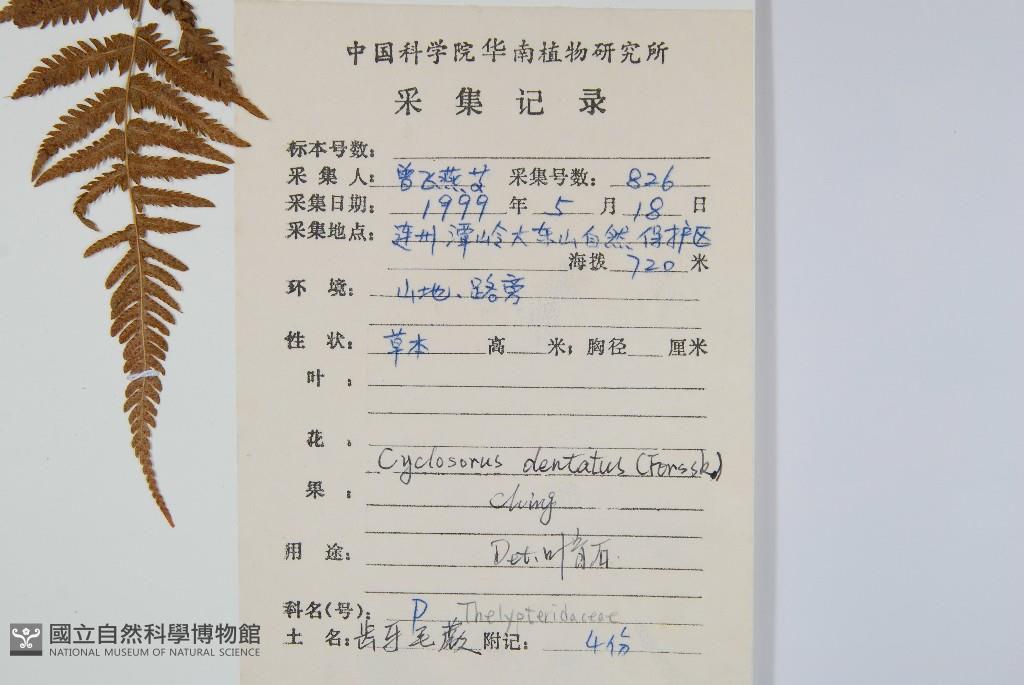 中国科学院华南植物研究所
采集记录
标本号数：
采集人：曾飞燕 采集号数：826
采集日期：1999年5月18日
采集地点：连州潭岭大东山自然保护区
海拨 720 米
环境：山地、路旁
性状：草本 高 米；胸径 厘米
叶：
花：
Cyclosorus dentatus (Forssk.)
果：
Ching
用途： Det. 叶育石.
科名(号)： P Thelypteridaceae
土名：齿牙毛蕨 附记：4份
國立自然科學博物館
NATIONAL MUSEUM OF NATURAL SCIENCE